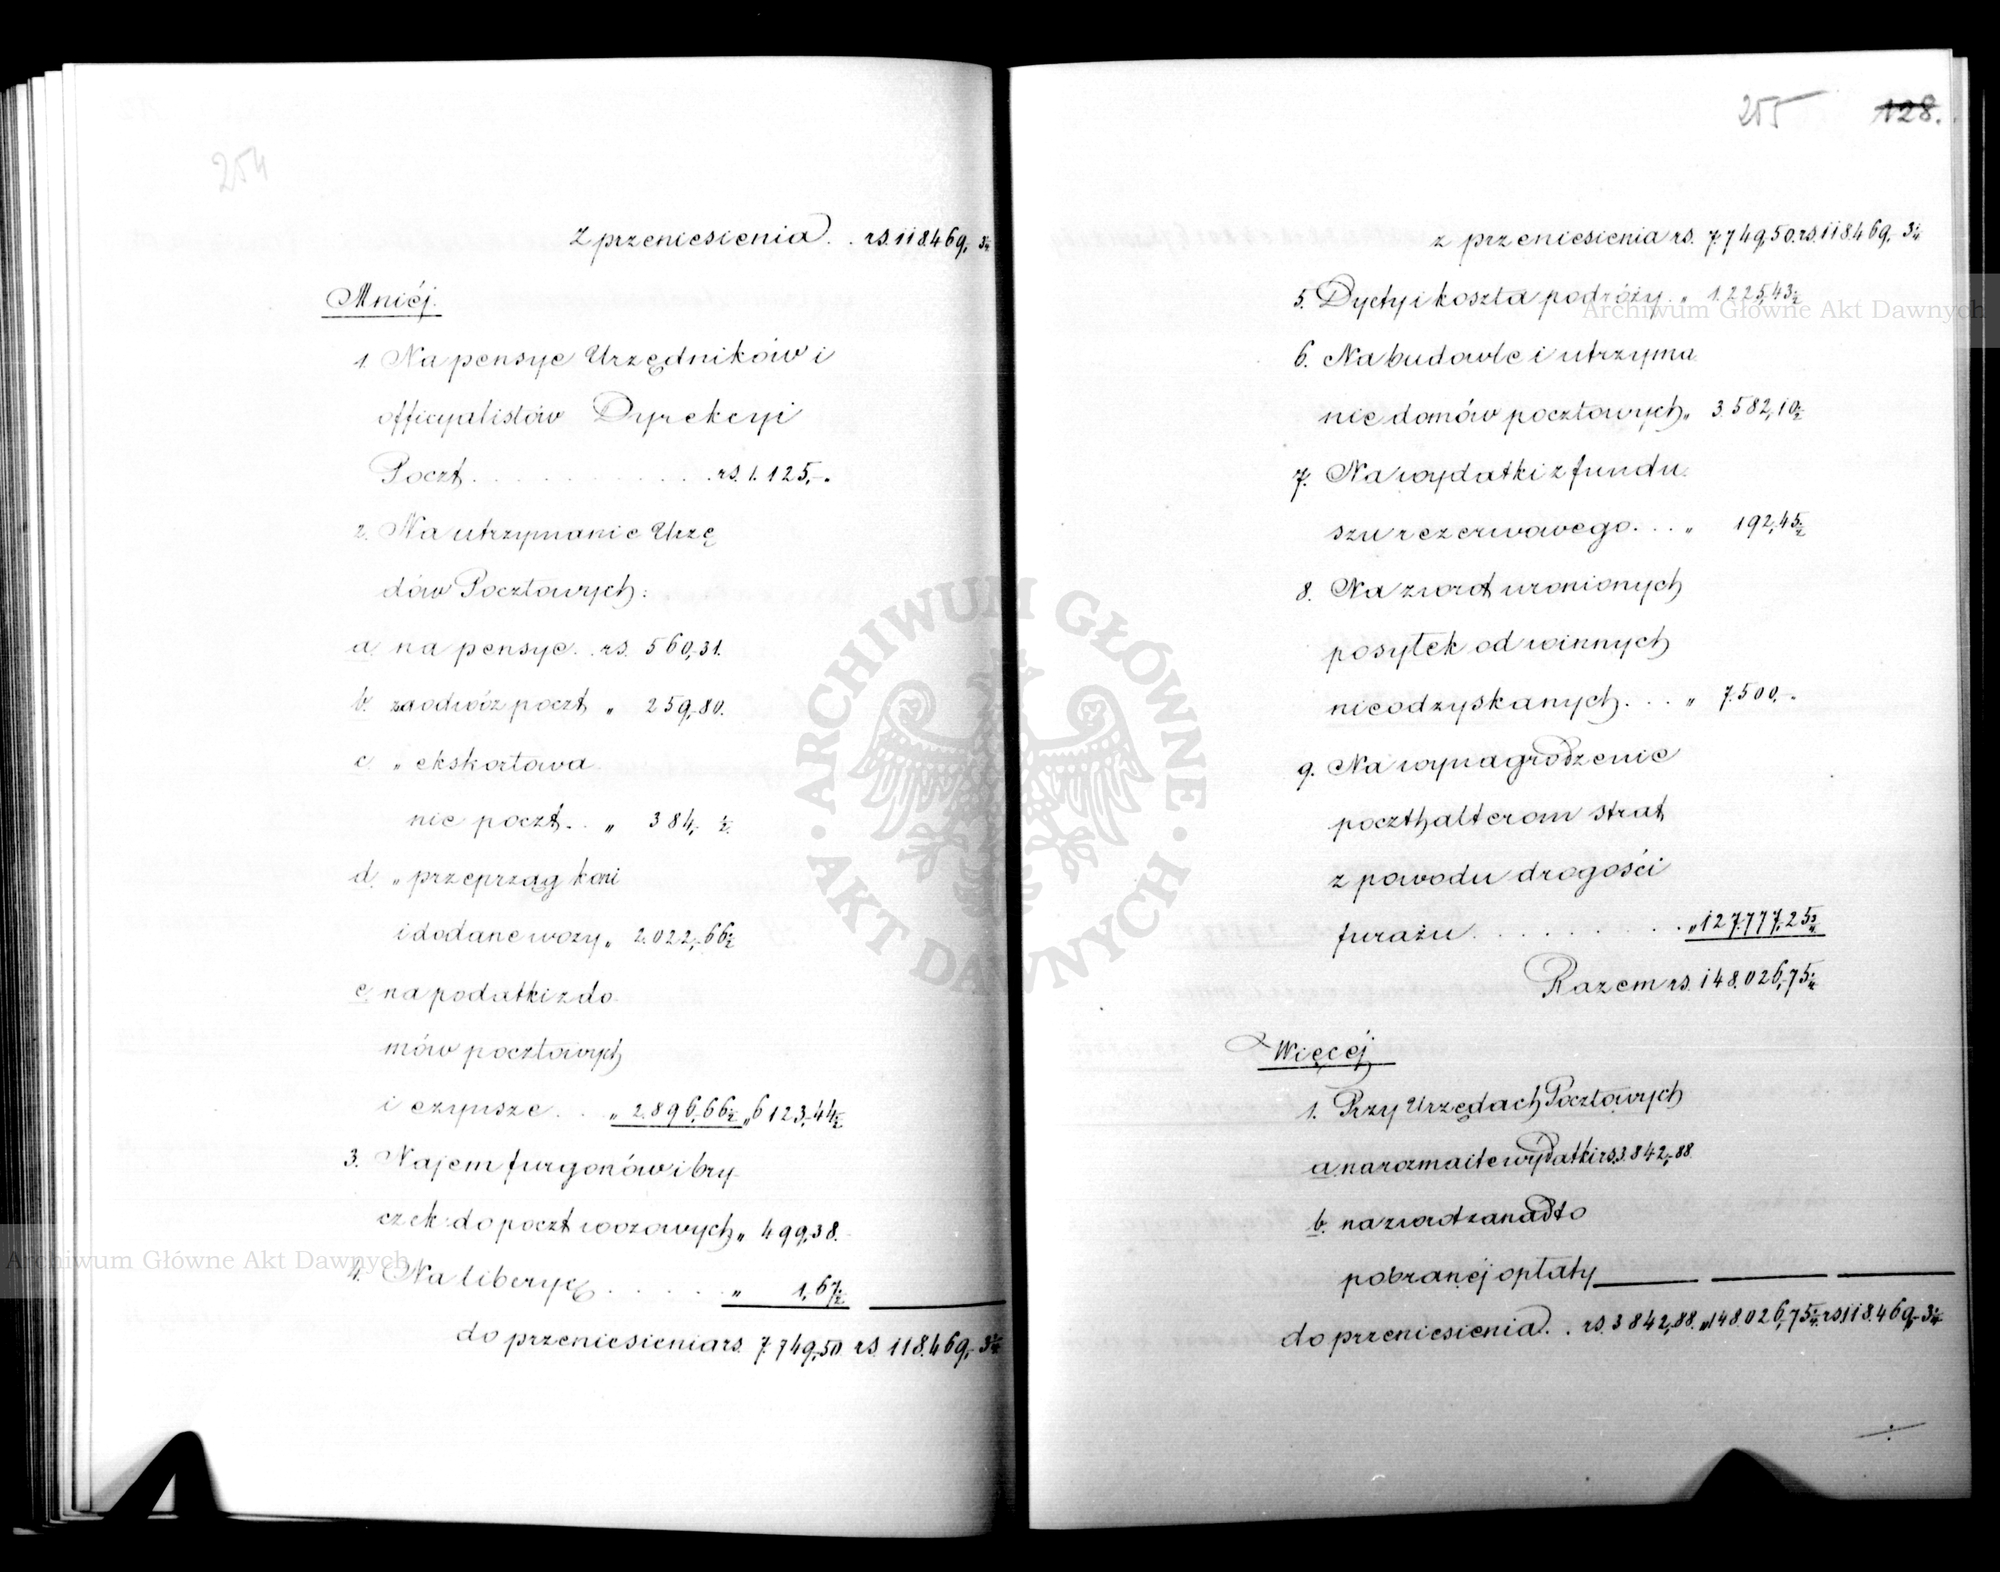 254
z przeniesienia . . rs. 118.469,- 3/4
Mniéj.
1. Na pensye Urzędników i
officyalistów Dyrekcyi
Poczt . . . . . . . . . . . rs. 1.125,-.
2. Na utrzymanie Urzę
dów Pocztowych:
a. na pensye . . rs. 560,31.
b. za odwóz poczt „ 259,80.
c. „ ekskortowa
nie poczt . . „ 384,- ½.
d. „ przeprząg koni
i dodane wozy „ 2.022,66½
e. na podatki z do
mów pocztowych
i czynsze . . „ 2.896,66½ „ 6123,44½
3. Najem furgonów i bry
czek do poczt wozowych „ 499,38.
4. Na liberye . . . . . . „ 1,67½
do przeniesienia rs. 7.749,50 rs. 118.469,- 3/4
255 128.
z przeniesienia rs. 7.749,50. rs. 118.469,- 3/4
5. Dyety i koszta podróży . „ 1.225,43½
6. Na budowle i utrzyma
nie domów pocztowych „ 3.582,10½
7. Na wydatki z fundu
szu rezerwowego . . . „ 192,45½
8. Na zwrot uronionych
posyłek od winnych
nieodzyskanych . . . „ 7.500,-.
9. Na wynagrodzenie
poczthalterom strat
z powodu drogości
furażu . . . . . . . . . „ 127.777,25¾
Razem rs. 148.026,75¼
Więcéj
1. Przy Urzędach Pocztowych
a. na rozmaite wydatki rs. 3.842,88
b. na zwrot zanadto
pobranéj opłaty
do przeniesienia . . rs. 3842,88. „ 148.026,75¼ rs. 118.469,- 3/4
Archiwum Główne Akt Dawnych
Archiwum Główne Akt Dawnych
ARCHIWUM GŁÓWNE · AKT DAWNYCH ·